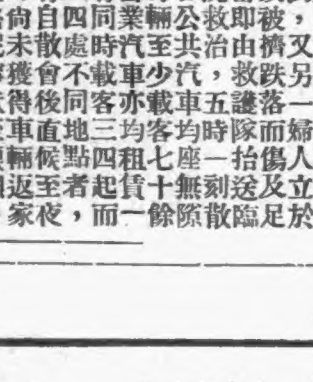 ，又另一婦人立於
被擠跌落而傷及足
即由救護隊抬送臨
救治，五時一刻散
公共汽車均座無隙
輛至少載客七十餘
業汽車亦均租賃一
同時載客三四起而
四處不同地點者，
自散會後直候至夜
尚未獲得車輛返家